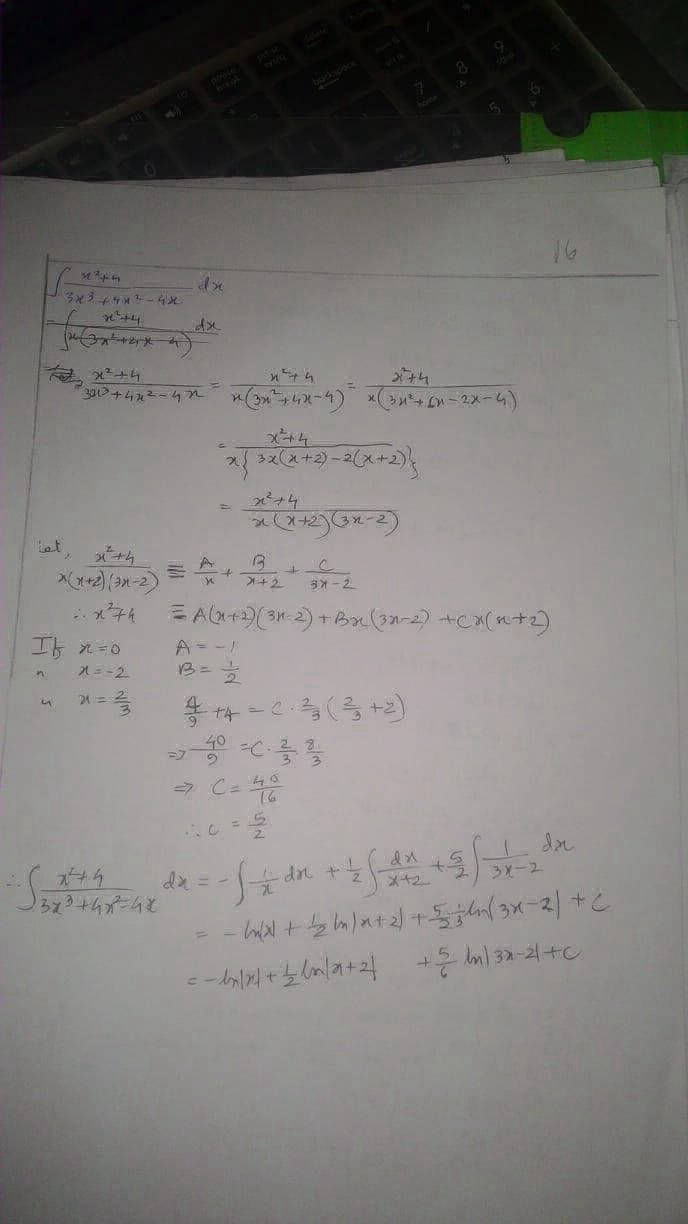 16
∫ x²+4 / 3x³+4x²-4x dx
= ∫ x²+4 / x(3x²+4x-4) dx
x²+4 / 3x³+4x²-4x = x²+4 / x(3x²+4x-4) = x²+4 / x(3x²+6x-2x-4)
= x²+4 / x{3x(x+2)-2(x+2)}
= x²+4 / x(x+2)(3x-2)
Let, x²+4 / x(x+2)(3x-2) ≡ A/x + B/x+2 + C/3x-2
∴ x²+4 ≡ A(x+2)(3x-2) + Bx(3x-2) + Cx(x+2)
If x=0 A=-1
" x=-2 B=1/2
" x=2/3 4/9+4 = C·2/3(2/3+2)
⇒ 40/9 = C·2/3 8/3
⇒ C = 40/16
∴ C = 5/2
∴ ∫ x²+4 / 3x³+4x²-4x dx = -∫ 1/x dx + 1/2 ∫ dx/x+2 + 5/2 ∫ 1/3x-2 dx
= -ln|x| + 1/2 ln|x+2| + 5/2 1/3 ln|3x-2| + C
= -ln|x| + 1/2 ln|x+2| + 5/6 ln|3x-2| + C